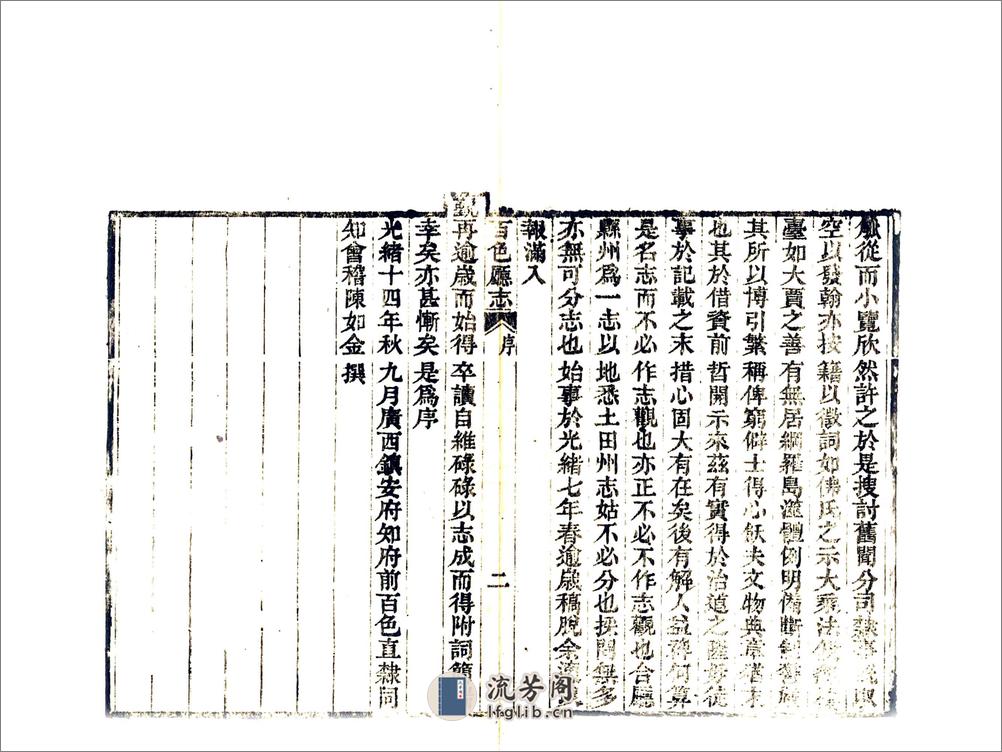 從而小覽欣然許之於是搜討舊聞分司
空以發翰亦按籍以徵詞如佛氏之示大乘法
臺如大賈之善有無居綱羅島滋體例明備斷制
其所以博引繁稱俾窮僻士得心飫夫文物典章
也其於借資前哲開示來茲有實得於治道之
事於記載之末措心固大有在矣後有解人
是名志而不必作志觀也亦正不必不作志觀也合廳
縣州為一志以地悉土田州志姑不必分也採聞無多
亦無可分志也始事於光緒七年春逾歲稿脫余
報滿入
百色廳志 序 二
覲再逾歲而始得卒讀自維碌碌以志成而得附詞簡
幸矣亦甚慚矣是為序
光緒十四年秋九月廣西鎮安府知府前百色直隸同
知會稽陳如金撰
流芳阁
lfglib.cn